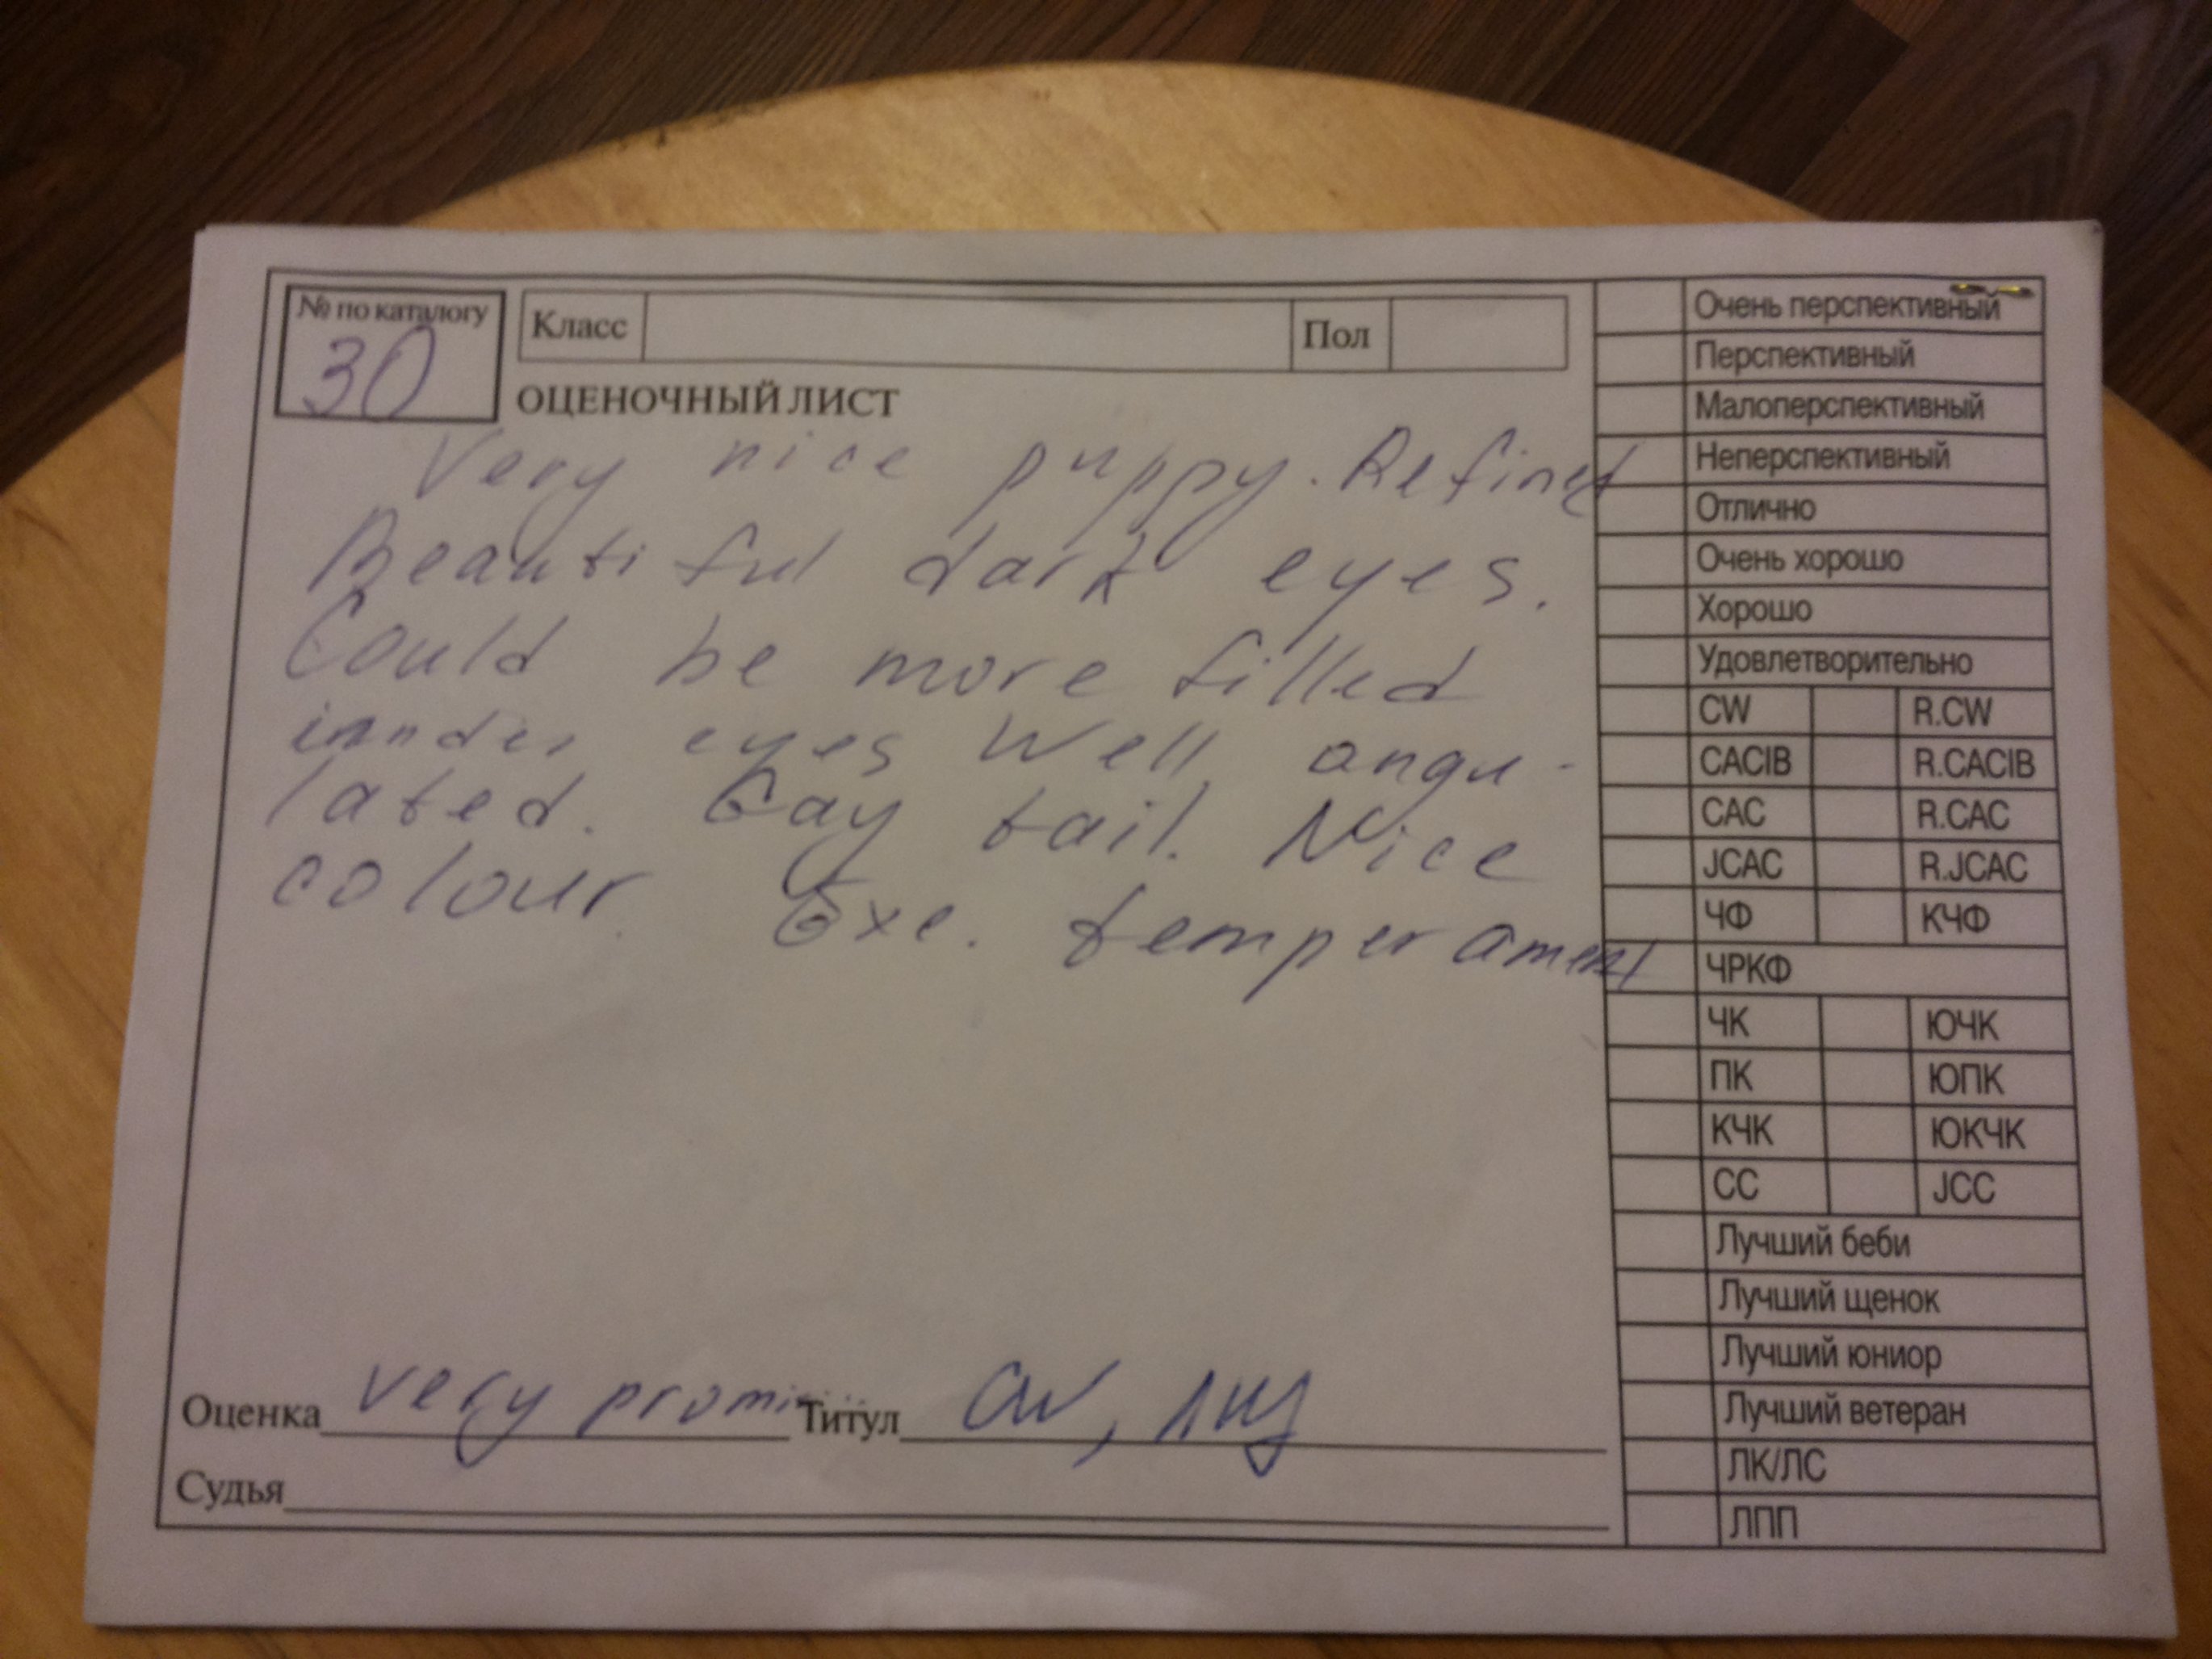 № по каталогу
30
Класс
Пол
ОЦЕНОЧНЫЙ ЛИСТ
Very nice puppy. Refined
Beautiful dark eyes.
Could be more filled
eyes Well angu-
lated. Gay tail. Nice
colour. Exc. temperament
Оценка very promi Титул CW, ЛЩ
Судья
Очень перспективный
Перспективный
Малоперспективный
Неперспективный
Отлично
Очень хорошо
Хорошо
Удовлетворительно
CW R.CW
CACIB R.CACIB
CAC R.CAC
JCAC R.JCAC
ЧФ КЧФ
ЧРКФ
ЧК ЮЧК
ПК ЮПК
КЧК ЮКЧК
СС JCC
Лучший беби
Лучший щенок
Лучший юниор
Лучший ветеран
ЛК/ЛС
ЛПП